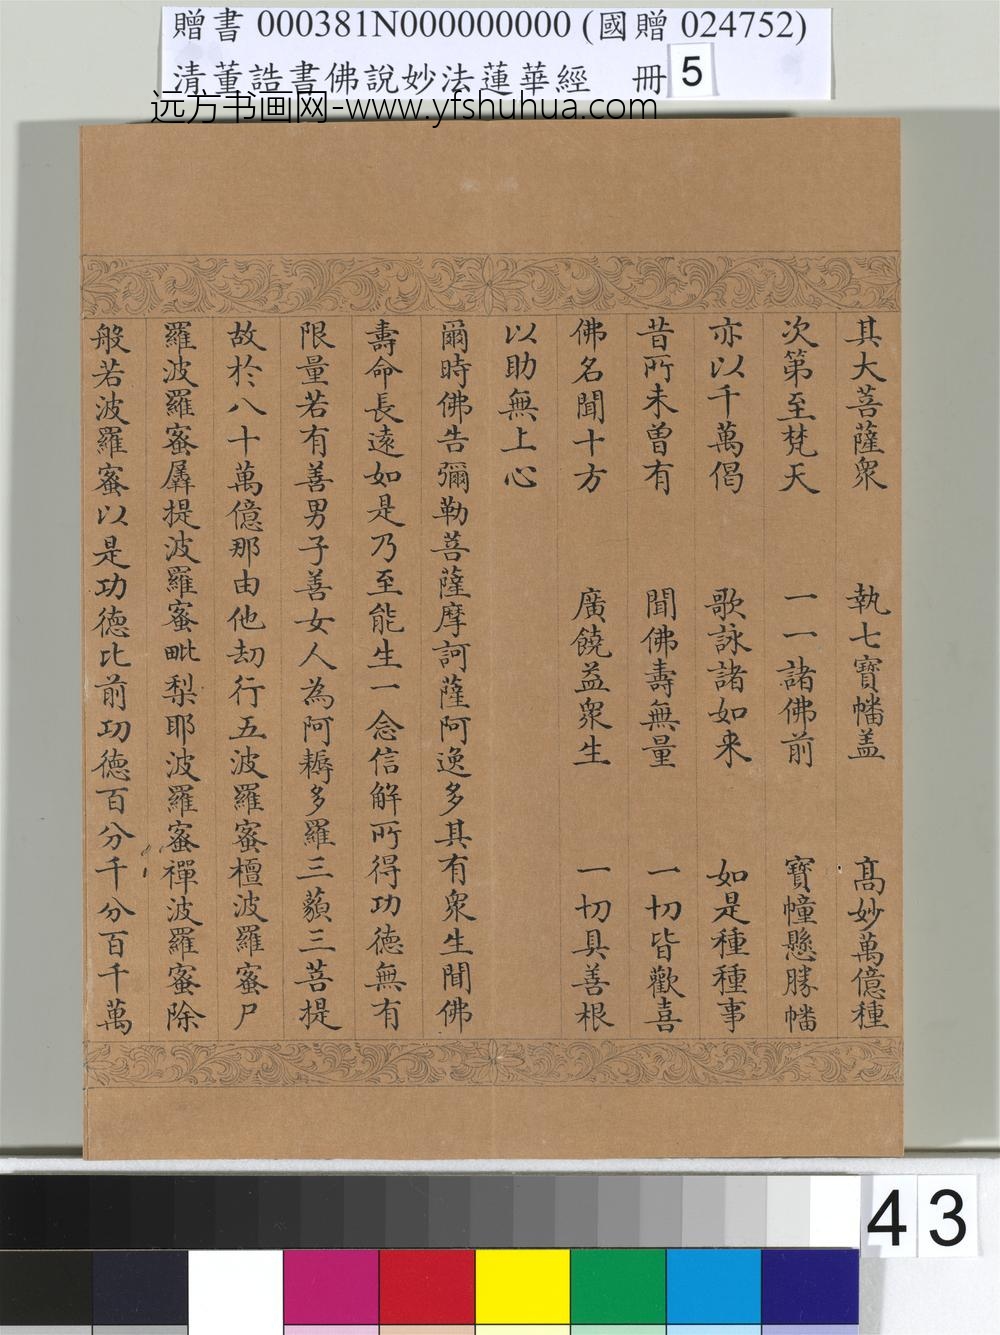 贈書 000381N000000000 (國贈 024752)
清董誥書佛說妙法蓮華經 冊 5
远方书画网-www.yfshuhua.com
其大菩薩衆 執七寶幡盖 高妙萬億種
次第至梵天 一一諸佛前 寶幢懸勝幡
亦以千萬偈 歌詠諸如来 如是種種事
昔所未曽有 聞佛壽無量 一切皆歡喜
佛名聞十方 廣饒益衆生 一切具善根
以助無上心
爾時佛告彌勒菩薩摩訶薩阿逸多其有衆生聞佛
壽命長遠如是乃至能生一念信解所得功德無有
限量若有善男子善女人為阿耨多羅三藐三菩提
故於八十萬億那由他劫行五波羅蜜檀波羅蜜尸
羅波羅蜜羼提波羅蜜毗梨耶波羅蜜禪波羅蜜除
般若波羅蜜以是功德比前功德百分千分百千萬
43